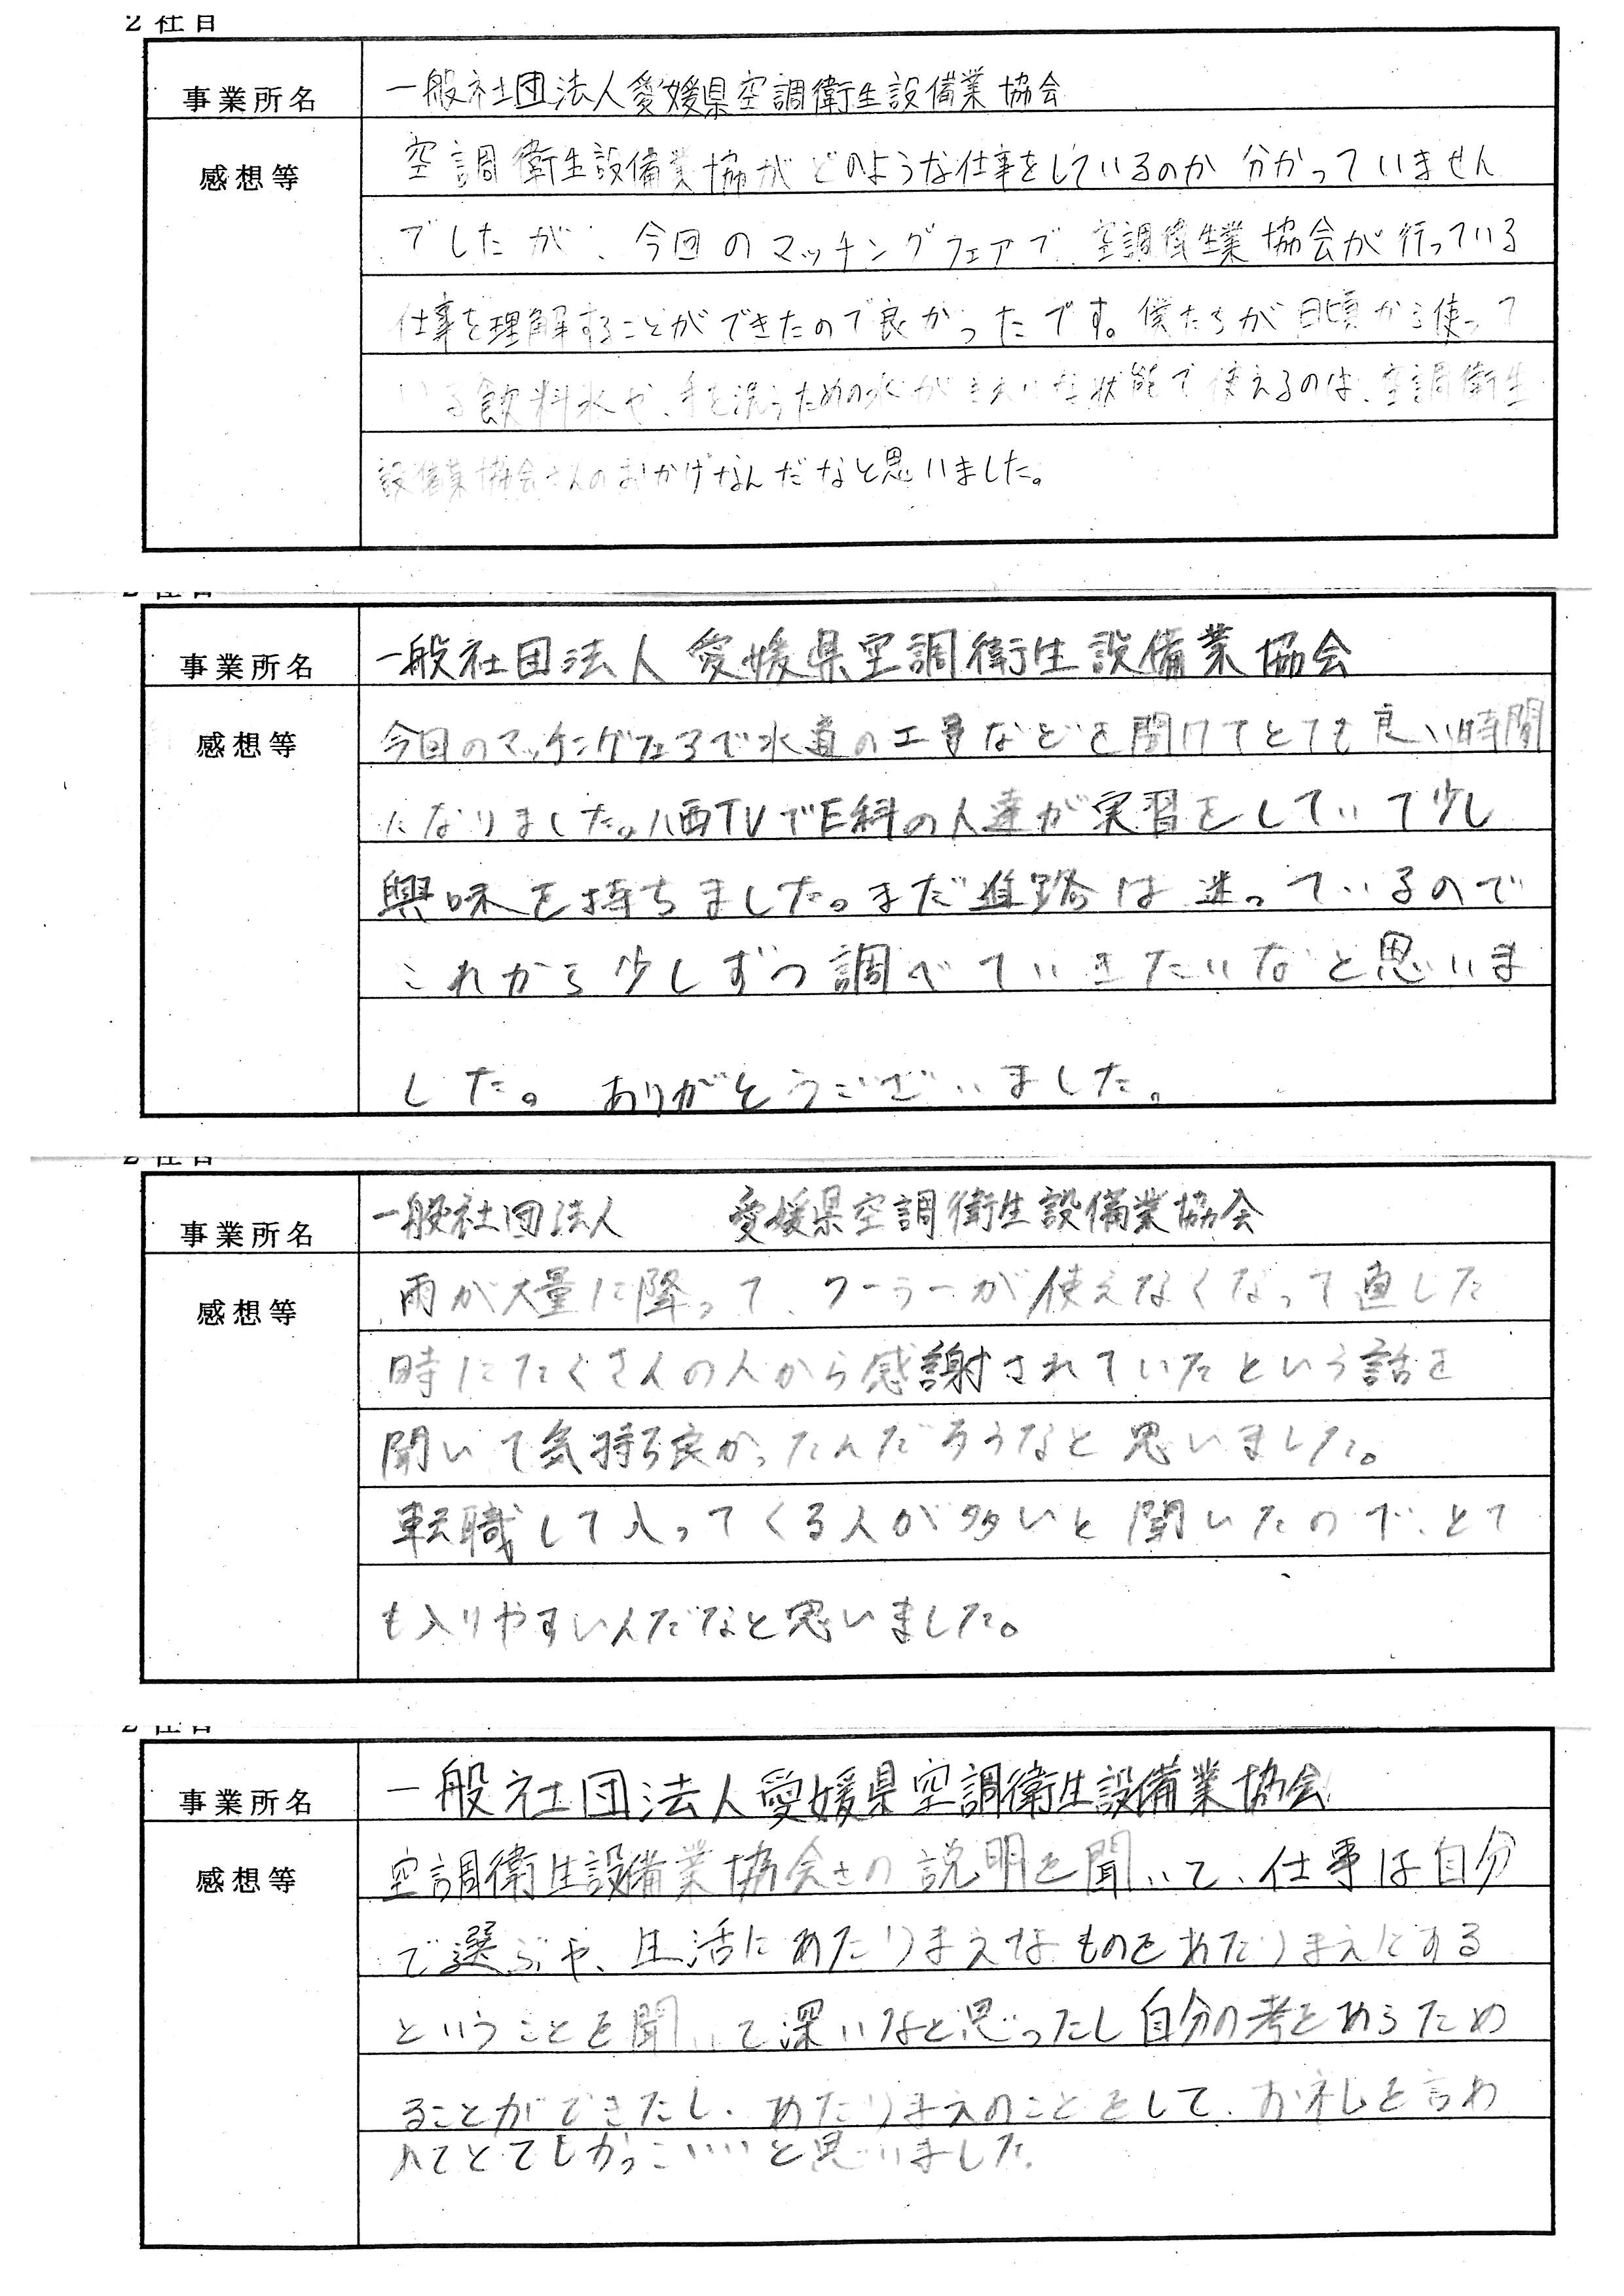 2社目
事業所名
一般社団法人愛媛県空調衛生設備業協会
感想等
空調衛生設備業協がどのような仕事をしているのか分かっていません
でしたが、今回のマッチングフェアで、空調衛生業協会が行っている
仕事を理解することができたので良かったです。僕たちが日頃から使って
いる飲料水や、手を洗うための水がきれいな状態で使えるのは、空調衛生
設備業協会さんのおかげなんだなと思いました。
2社目
事業所名
一般社団法人 愛媛県空調衛生設備業協会
感想等
今回のマッチングフェアで水道の工事などを聞けてとても良い時間
になりました。八西TVでE科の人達が実習をしていて少し
興味を持ちました。まだ進路は迷っているので
これから少しずつ調べていきたいなと思いま
した。ありがとうございました。
2社目
事業所名
一般社団法人 愛媛県空調衛生設備業協会
感想等
雨が大量に降って、クーラーが使えなくなって直した
時にたくさんの人から感謝されていたという話を
聞いて気持ち良かったんだろうなと思いました。
転職して入ってくる人が多いと聞いたので、とて
も入りやすいんだなと思いました。
2社目
事業所名
一般社団法人愛媛県空調衛生設備業協会
感想等
空調衛生設備業協会さの説明を聞いて、仕事は自分
で選ぶや、生活にあたりまえなものをあたりまえにする
ということを聞いて深いなと思ったし自分の考をあらため
ることができたし、あたりまえのことをして、お礼を言わ
れてとてもかっこいいと思いました。